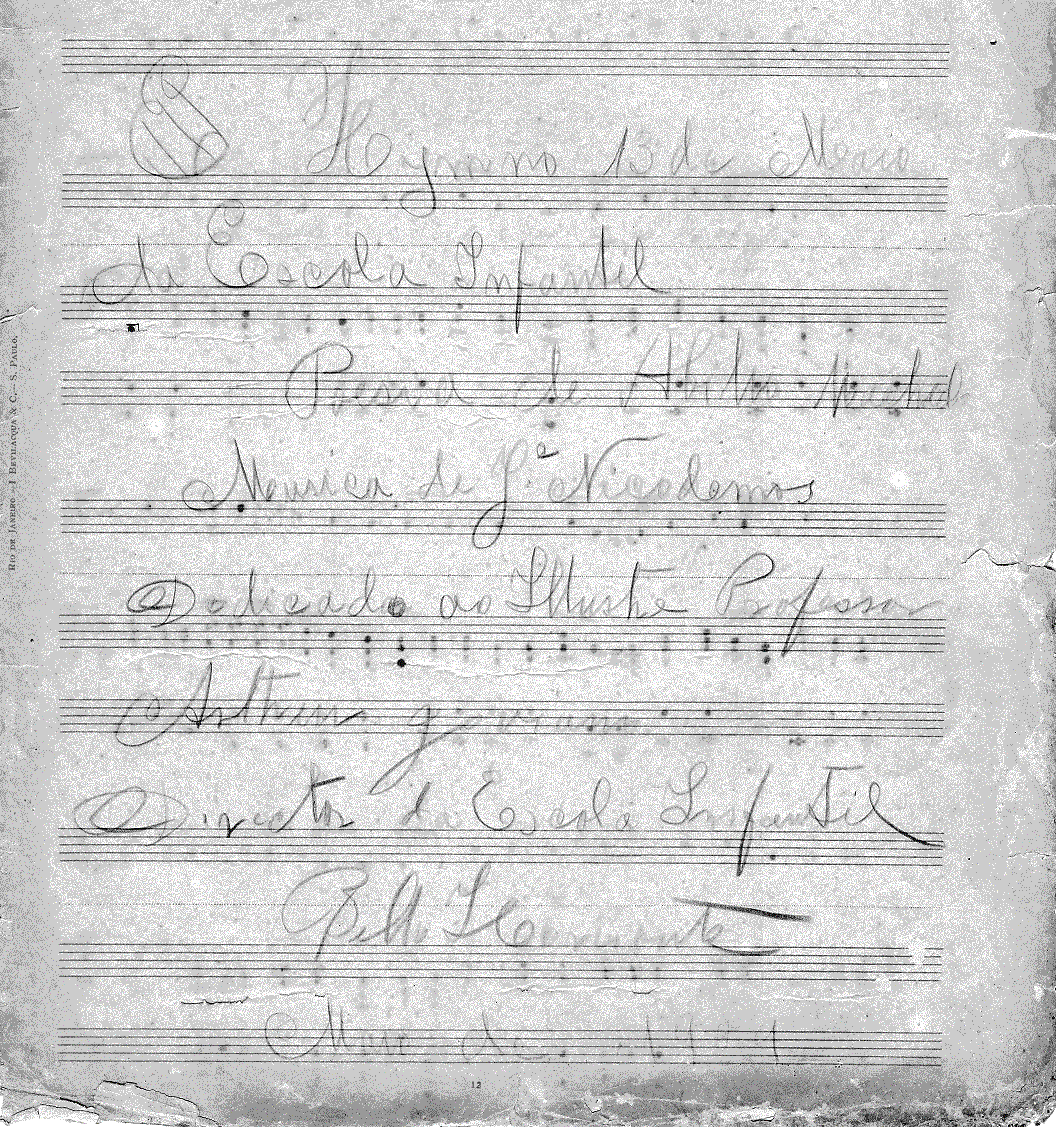 Hymno 13 de Maio
da Escola Infantil
Poesia de Abilio
Musica de J.ᵉ Nicodemos
Dedicado ao Illustre Professor
Arthur Joviano
Director da Escola Infantil
Bello Horizonte
Maio de
12
RIO DE JANEIRO - J. BEVILACQUA & C. - S. PAULO.